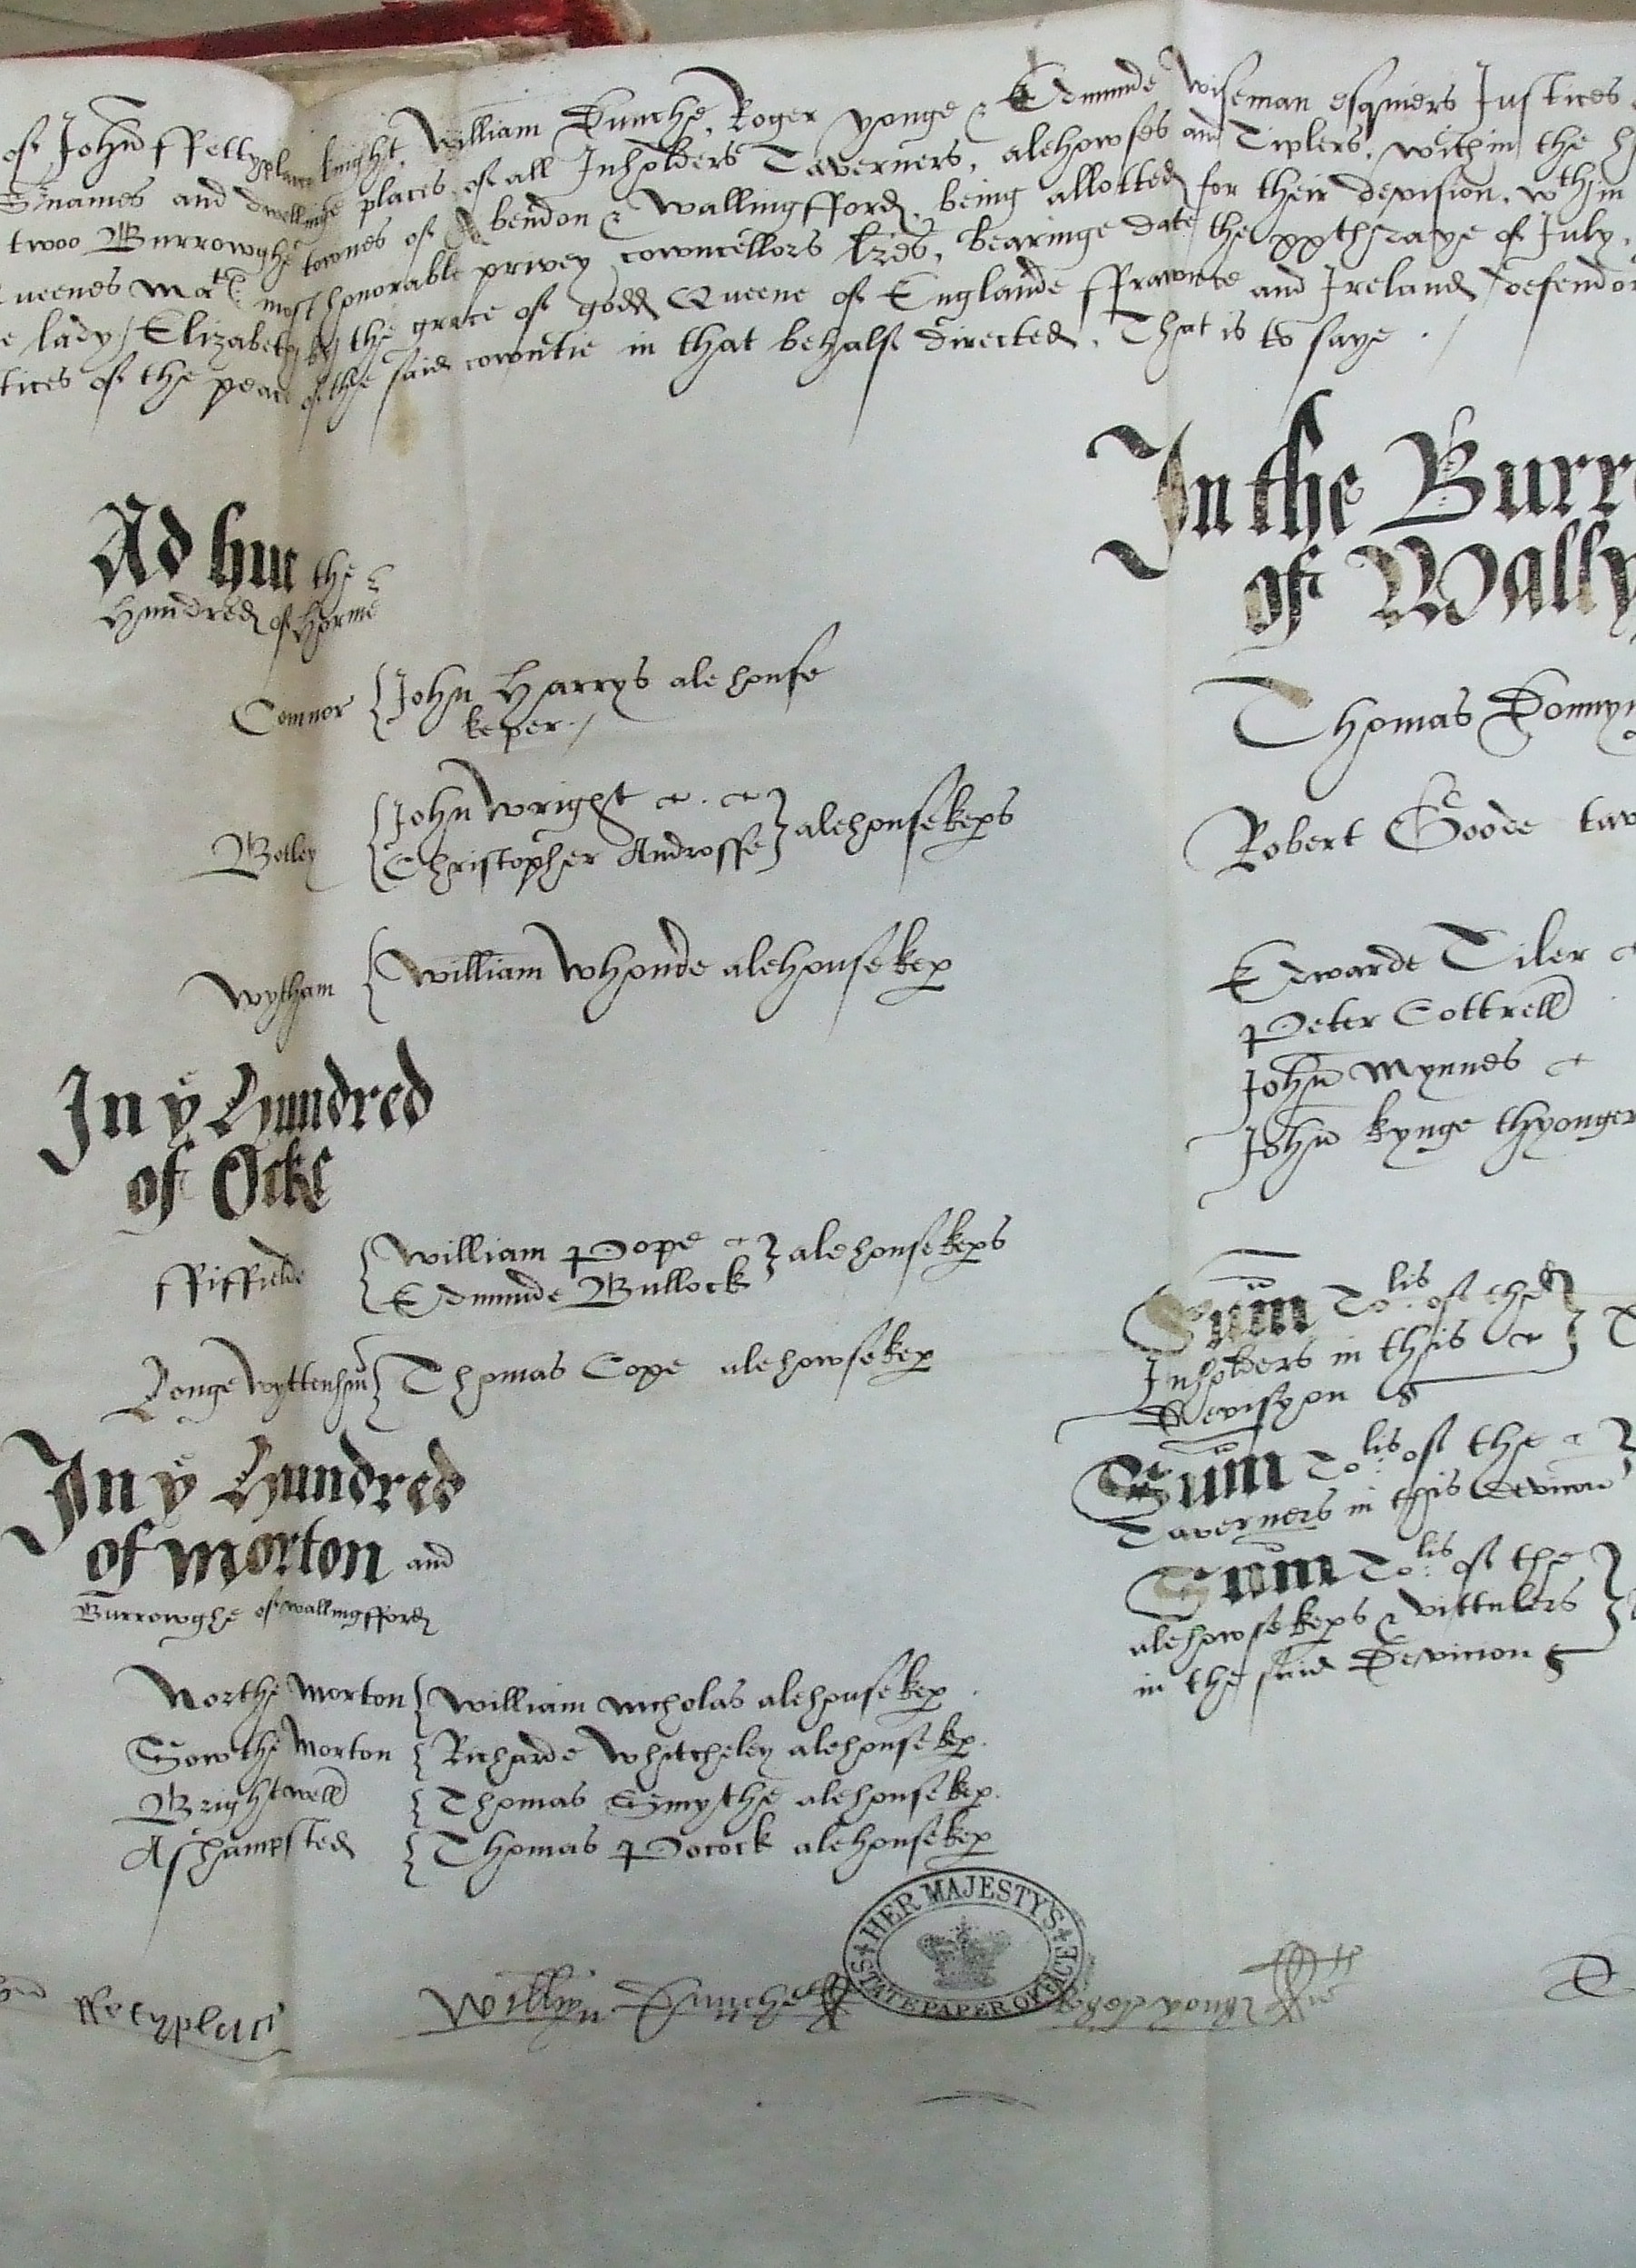 of John ffettyplace knight, William Dunche, Roger yonge & Edmunde Wiseman esquiers Justices
names and dwellinge places of all Inholders Taverners, alehowses and Tiplers, within the
twoo Burrowghe townes of Abendon & Wallingfford, being allotted for their devision, wthin
Queenes Matꝭ most honorable privey cowncellors lres, bearinge date the xxth daye of July,
lady Elizabeth by the grace of godd Queene of Englande ffraunce and Ireland defendor
tices of the peace of the said cowntie in that behalf directed, That is to saye
Ad huc the
Hundred of Horme
Comnor { John Harrys alehouse
keper
Botley { John Wright
Christopher Androsse } alehousekeps
Wytham { William Whonde alehousekep
In ye Hundred
of Ocke
ffiffielde { William Pope
Edmunde Bullock } alehousekeps
Longe Wyttenhm { Thomas Cope alehowsekep
In ye Hundred
of Morton and
Burrowghe of Wallingfford
Northe Morton { William nicholas alehousekep
Sowthe Morton { Richarde Whitcheley alehousekep
Brightwell { Thomas Smythe alehousekep
Ashampsted { Thomas Pocock alehousekep
In the Burr
of Wally
Thomas Donnyn
Robert Goode tav
Edwarde Tiler
Peter Cottrell
John Mynnes
John kynge thyonger
Sum Tolis of the
Inholders in this
Devisyon
Sum Tolis of the
Taverners in this Devicon
Sum Tolis of the
alehowsekeps & vittulers
in the said Devicion
ffetyplace
Willyn Dunche
Roger yonge
HER MAJESTY'S
STATE PAPER OFFICE